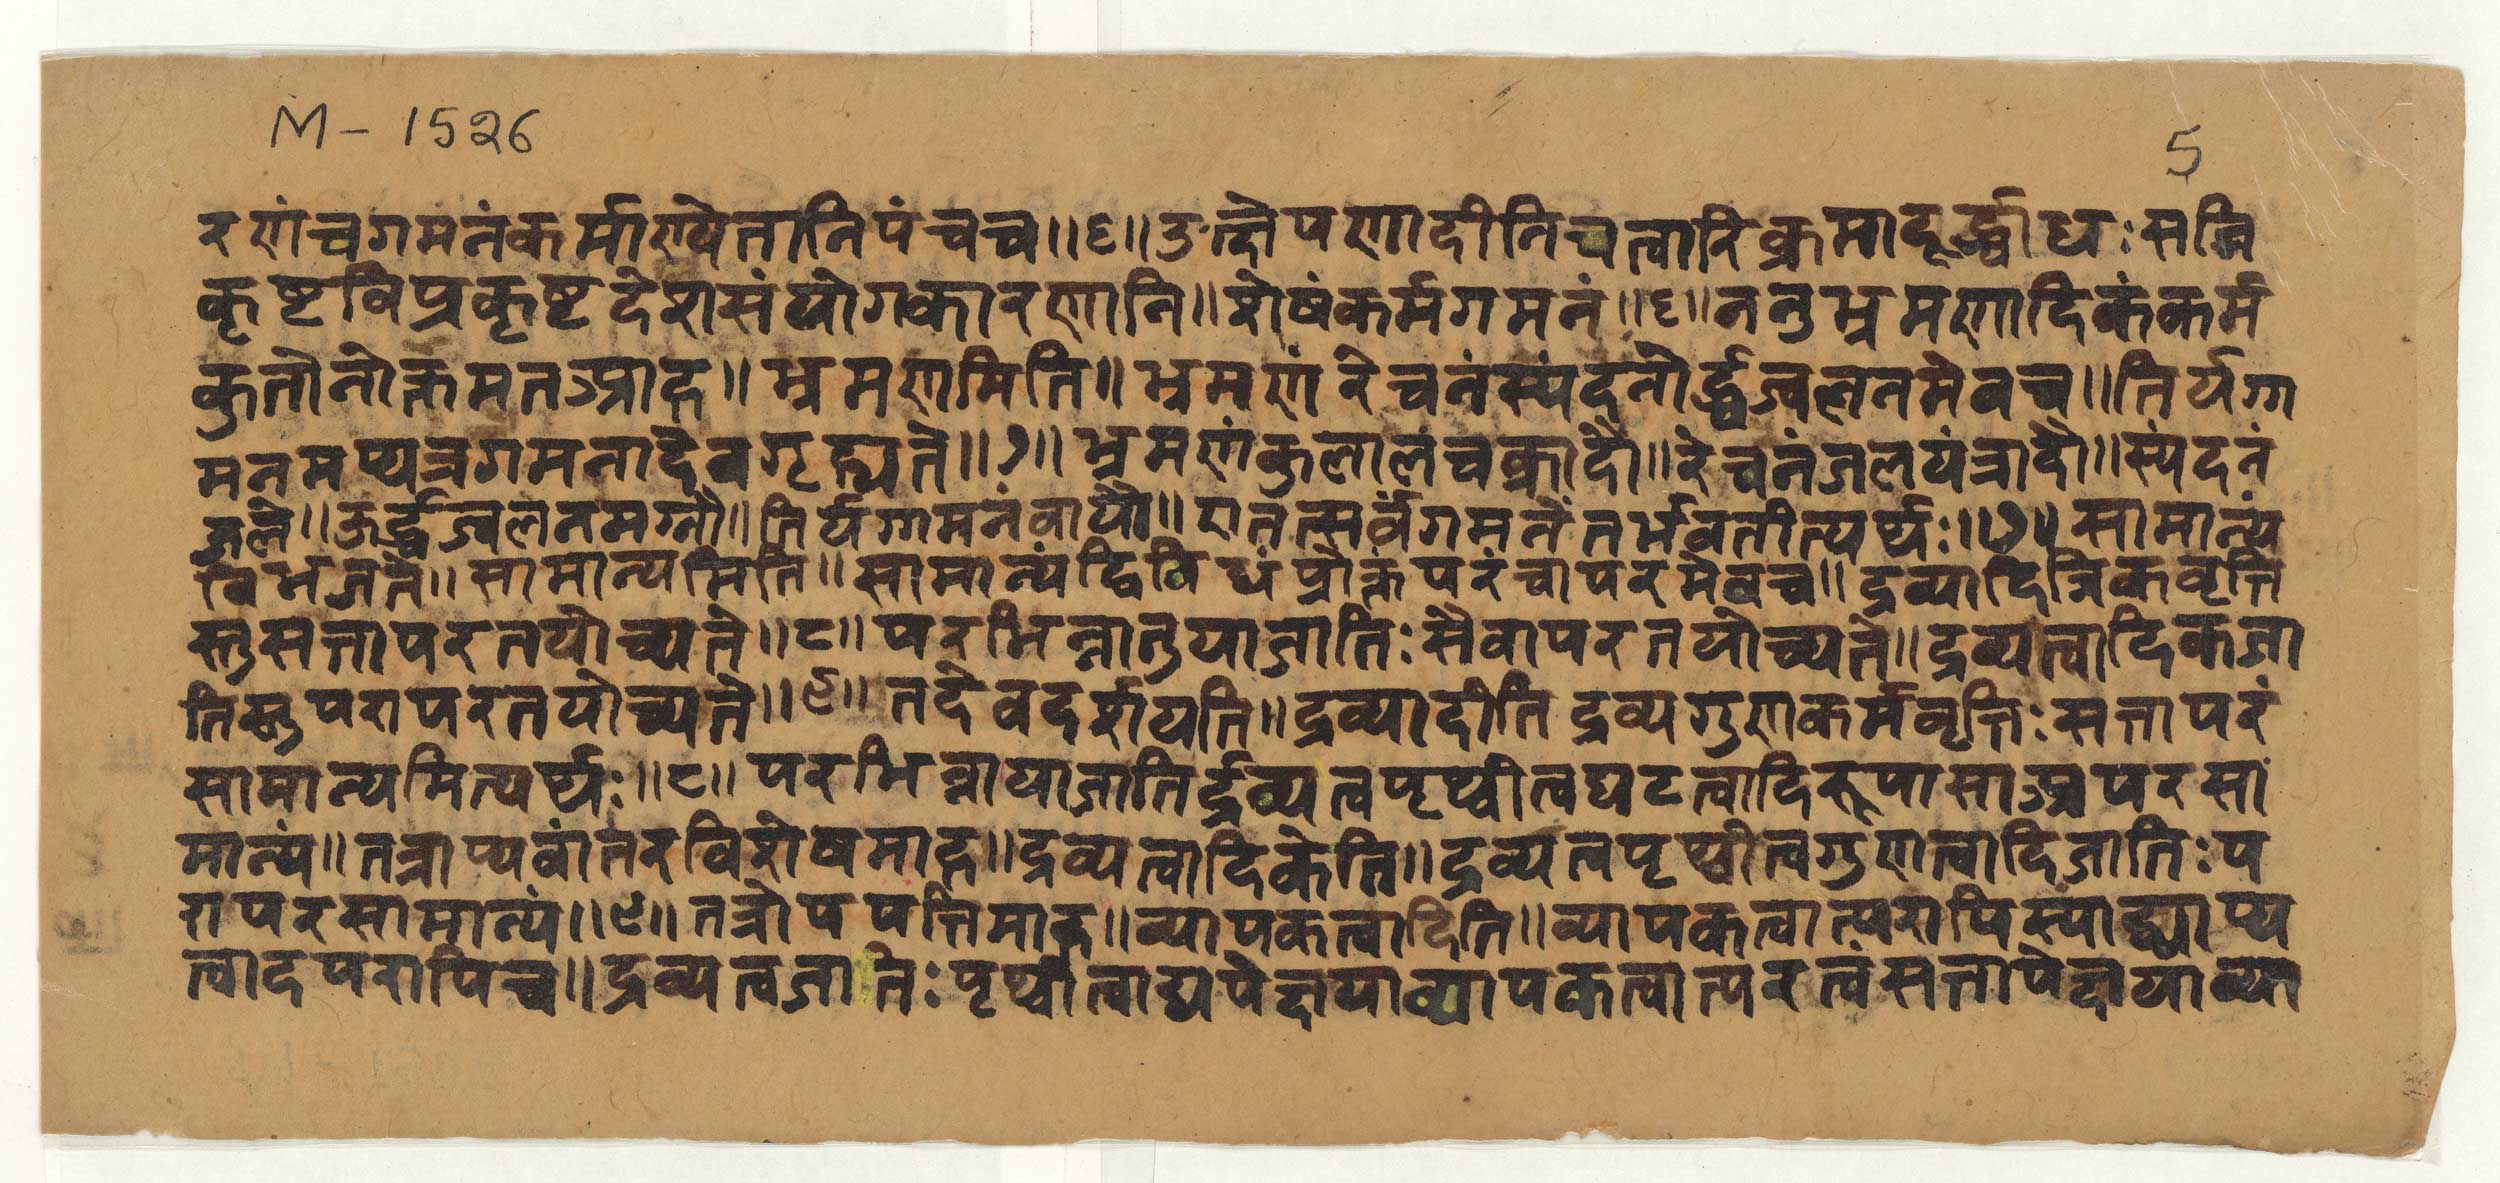 M - 1526
5
रणंचगमनंकर्माण्येतानिपंचच॥६॥उत्क्षेपणादीनिचत्वारिक्रमादूर्द्ध्वाधःसन्नि
कृष्टविप्रकृष्टदेशसंयोगकारणानि॥शेषंकर्मगमनं॥६॥ननुभ्रमणादिकंकर्म
कुतोनोक्तमतआह॥भ्रमणमिति॥भ्रमणंरेचनंस्यंदनोर्द्ध्वज्वलनमेवच॥तिर्यग्ग
मनमप्यत्रगमनादेवगृह्यते॥७॥भ्रमणंकुलालचक्रादौ॥रेचनंजलयंत्रादौ॥स्यंदनं
जले॥ऊर्द्ध्वज्वलनमग्नौ॥तिर्यग्गमनंवायौ॥एतत्सर्वंगमनेंतर्भवतीत्यर्थः॥७॥सामान्यं
विभजते॥सामान्यमिति॥सामान्यंद्विविधंप्रोक्तंपरंचापरमेवच॥द्रव्यादित्रिकवृत्ति
स्तुसत्तापरतयोच्यते॥८॥परभिन्नातुयाजातिःसैवापरतयोच्यते॥द्रव्यत्वादिकजा
तिस्तुपरापरतयोच्यते॥९॥तदेवदर्शयति॥द्रव्यादीतिद्रव्यगुणकर्मवृत्तिःसत्तापरं
सामान्यमित्यर्थः॥८॥परभिन्नायाजातिर्द्रव्यत्वपृथ्वीत्वघटत्वादिरूपासाअपरसां
मान्यं॥तत्राप्यवांतरविशेषमाह॥द्रव्यत्वादिकेति॥द्रव्यत्वपृथ्वीत्वगुणत्वादिजातिःप
रापरसामान्यं॥९॥तत्रोपपत्तिमाह॥व्यापकत्वादिति॥व्यापकत्वात्परापिस्याद्व्याप्य
त्वादपरापिच॥द्रव्यत्वजातिःपृथ्वीत्वाद्यपेक्षयाव्यापकत्वात्परत्वंसत्तापेक्षयाव्या